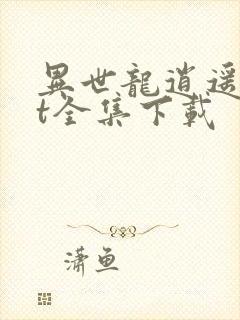 異世龍逍遥
t全集下載
潇鱼